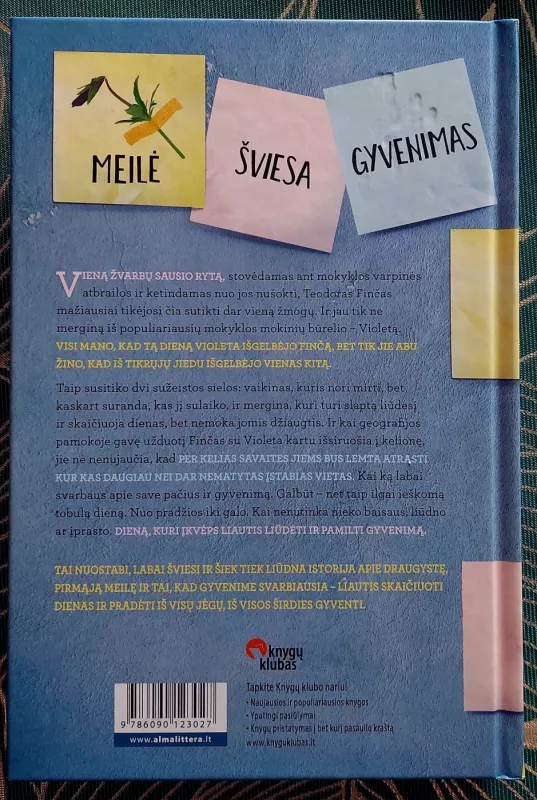 MEILĖ
ŠVIESA
GYVENIMAS
VIENĄ ŽVARBŲ SAUSIO RYTĄ, stovėdamas ant mokyklos varpinės
atbrailos ir ketindamas nuo jos nušokti, Teodoras Finčas
mažiausiai tikėjosi čia sutikti dar vieną žmogų. Ir jau tik ne
merginą iš populiariausių mokyklos mokinių būrelio – Violetą.
VISI MANO, KAD TĄ DIENĄ VIOLETA IŠGELBĖJO FINČĄ, BET TIK JIE ABU
ŽINO, KAD IŠ TIKRŲJŲ JIEDU IŠGELBĖJO VIENAS KITĄ.
Taip susitiko dvi sužeistos sielos: vaikinas, kuris nori mirti, bet
kaskart suranda, kas jį sulaiko, ir mergina, kuri turi slaptą liūdesį
ir skaičiuoja dienas, bet nemoka jomis džiaugtis. Ir kai geografijos
pamokoje gavę užduotį Finčas su Violeta kartu išsiruošia į kelionę,
jie nė nenujaučia, kad PER KELIAS SAVAITES JIEMS BUS LEMTA ATRASTI
KUR KAS DAUGIAU NEI DAR NEMATYTAS ĮSTABIAS VIETAS. Kai ką labai
svarbaus apie save pačius ir gyvenimą. Galbūt – net taip ilgai ieškomą
tobulą dieną. Nuo pradžios iki galo. Kai nenutinka nieko baisaus, liūdno
ar įprasto. DIENĄ, KURI ĮKVĖPS LIAUTIS LIŪDĖTI IR PAMILTI GYVENIMĄ.
TAI NUOSTABI, LABAI ŠVIESI IR ŠIEK TIEK LIŪDNA ISTORIJA APIE DRAUGYSTĘ,
PIRMĄJĄ MEILĘ IR TAI, KAD GYVENIME SVARBIAUSIA – LIAUTIS SKAIČIUOTI
DIENAS IR PRADĖTI IŠ VISŲ JĖGŲ, IŠ VISOS ŠIRDIES GYVENTI.
knygų
klubas
Tapkite Knygų klubo nariu!
• Naujausios ir populiariausios knygos
• Ypatingi pasiūlymai
• Knygų pristatymas į bet kurį pasaulio kraštą
www.knyguklubas.lt
9 786090 123027
www.almalittera.lt